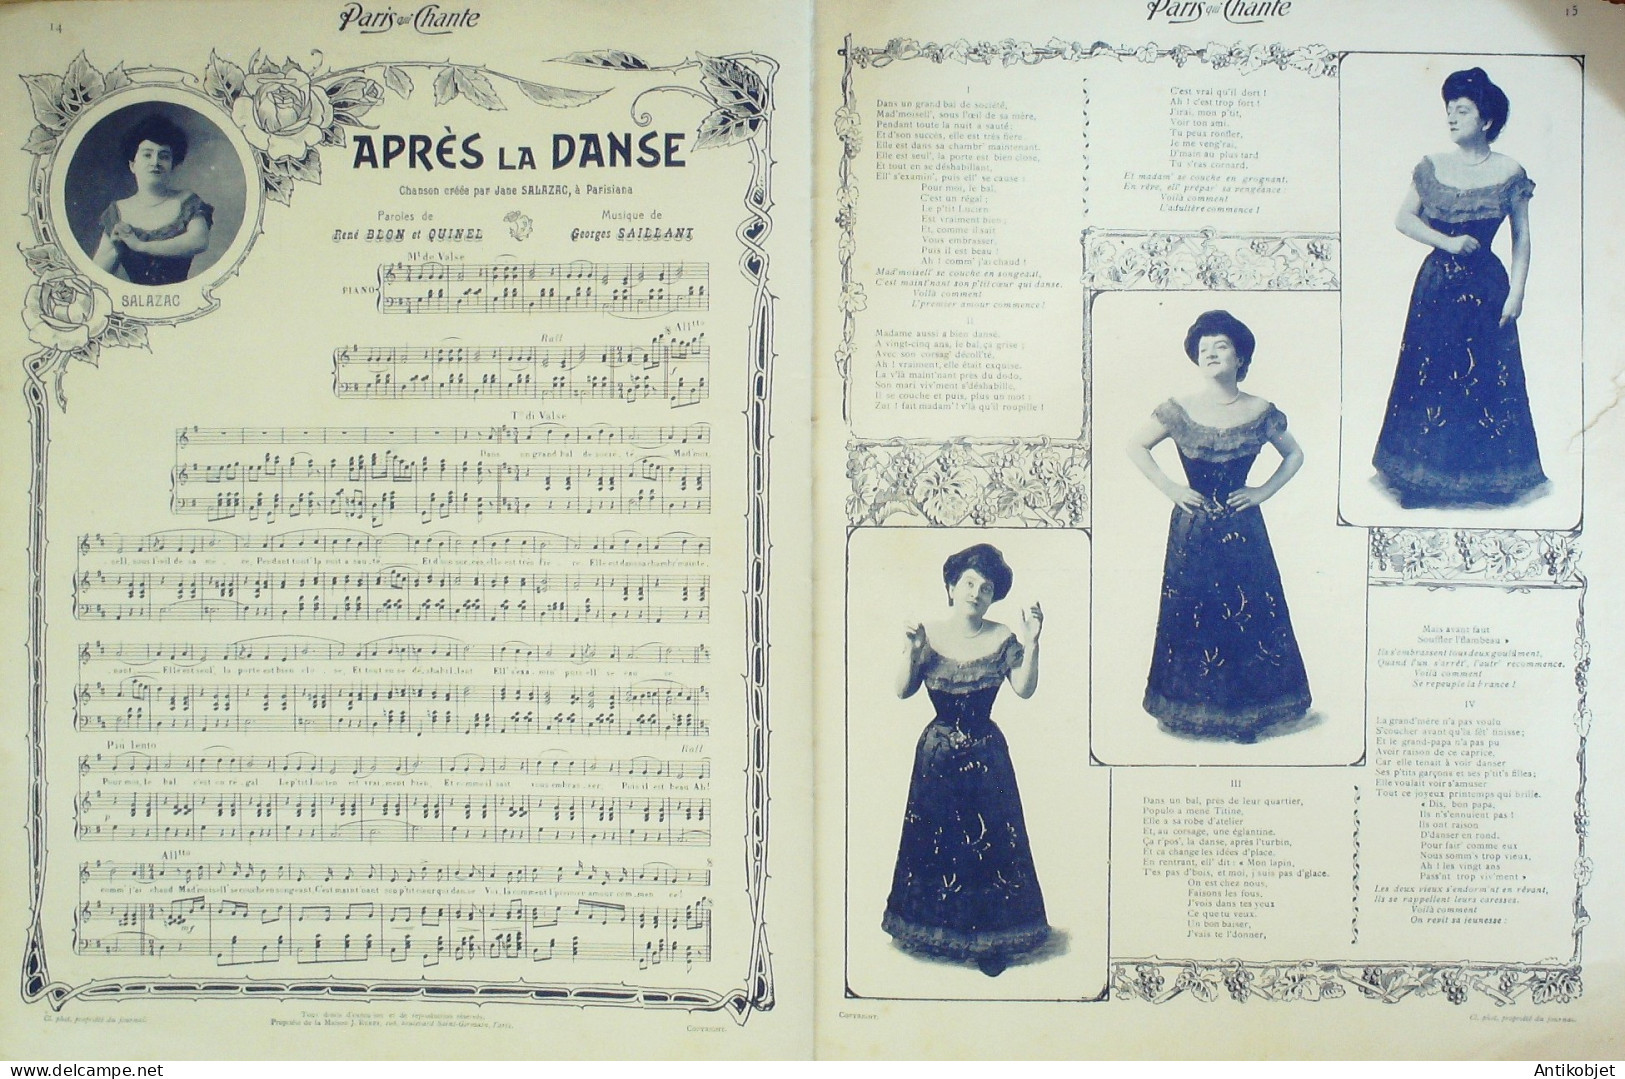 14
Paris qui Chante
APRÈS LA DANSE
Chanson créée par Jane SALAZAC, à Parisiana
Paroles de
René BLON et QUINEL
Musique de
Georges SAILLANT
SALAZAC
Mt de Valse
PIANO
Rall
Alltto
To di Valse
Dans un grand bal de socié_té, Mad'moi_
_sell', sous l'œil de sa mè_ re, Pendant tout' la nuit a sau_té Et d'son succès, elle est très fiè_ re. Elle est dans sa chambr' mainte_
_nant Elle est seul', la porte est bien clo_ se, Et tout en se dés_habil_lant Ell' s'exa_min' puis ell' se cau_se
Più lento
Rall
Pour moi, le bal c'est un ré_gal Le p'tit Lucien est vrai_ment bien, Et comme il sait vous embras_ser, Puis il est beau Ah!
Alltto
comm' j'ai chaud Mad'moisell' se couche en songeant, C'est maint'nant son p'tit cœur qui danse Voi_là comment l'premier amour com_men_ce!
Cl. phot. propriété du journal.
Tous droits d'exécution et de reproduction réservés.
Propriété de la Maison J. Rueff, 108, boulevard Saint-Germain, Paris.
COPYRIGHT.
Paris qui Chante
15
I
Dans un grand bal de société,
Mad'moisell', sous l'œil de sa mère,
Pendant toute la nuit a sauté;
Et d'son succès, elle est très fière.
Elle est dans sa chambr' maintenant.
Elle est seul', la porte est bien close,
Et tout en se déshabillant,
Ell' s'examin', puis ell' se cause :
Pour moi, le bal,
C'est un régal ;
Le p'tit Lucien
Est vraiment bien ;
Et, comme il sait
Vous embrasser,
Puis il est beau !
Ah ! comm' j'ai chaud !
Mad'moisell' se couche en songeant,
C'est maint'nant son p'tit cœur qui danse.
Voilà comment
L'premier amour commence !
II
Madame aussi a bien dansé.
A vingt-cinq ans, le bal, ça grise ;
Avec son corsag' décoll'té,
Ah ! vraiment, elle était exquise.
La v'là maint'nant près du dodo,
Son mari viv'ment s'déshabille,
Il se couche et puis, plus un mot :
Zut ! fait madam' ! v'là qu'il roupille !
C'est vrai qu'il dort !
Ah ! c'est trop fort !
J'irai, mon p'tit,
Voir ton ami.
Tu peux ronfler,
Je me veng'rai,
D'main au plus tard
Tu s'ras cornard.
Et madam' se couche en grognant.
En rêve, ell' prépar' sa vengeance :
Voilà comment
L'adultère commence !
III
Dans un bal, près de leur quartier,
Populo a mené Titine,
Elle a sa robe d'atelier
Et, au corsage, une églantine.
Ça r'pos', la danse, après l'turbin,
Et ça change les idées d'place.
En rentrant, ell' dit : « Mon lapin,
T'es pas d'bois, et moi, j'suis pas d'glace.
On est chez nous,
Faisons les fous,
J'vois dans tes yeux
Ce que tu veux.
Un bon baiser,
J'vais te l'donner,
Mais avant faut
Souffler l'flambeau »
Ils s'embrassent tous deux goulûment,
Quand l'un s'arrêt', l'autr' recommence.
Voilà comment
Se repeuple la France !
IV
La grand'mère n'a pas voulu
S'coucher avant qu'la fêt' finisse;
Et le grand-papa n'a pas pu
Avoir raison de ce caprice,
Car elle tenait à voir danser
Ses p'tits garçons et ses p'tit's filles;
Elle voulait voir s'amuser
Tout ce joyeux printemps qui brille.
« Dis, bon papa,
Ils n's'ennuient pas !
Ils ont raison
D'danser en rond,
Pour fair' comme eux
Nous somm's trop vieux,
Ah ! les vingt ans
Pass'nt trop viv'ment »
Les deux vieux s'endorm'nt en rêvant,
Ils se rappellent leurs caresses.
Voilà comment
On revit sa jeunesse :
COPYRIGHT.
Cl. phot. propriété du journal.
Antikobjet